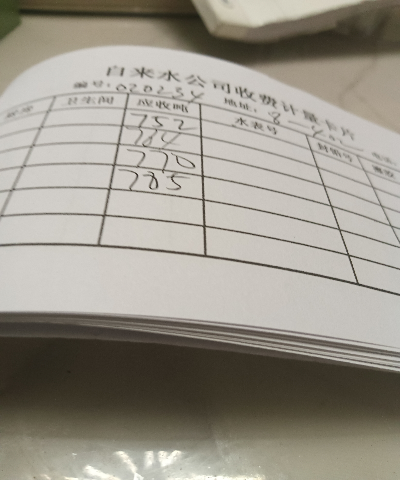 自来水公司收费计量卡片
编号:020234 地址: 8-402 电话:
厨房 卫生间 应收吨 水表号 封铅号
752
764
770
785